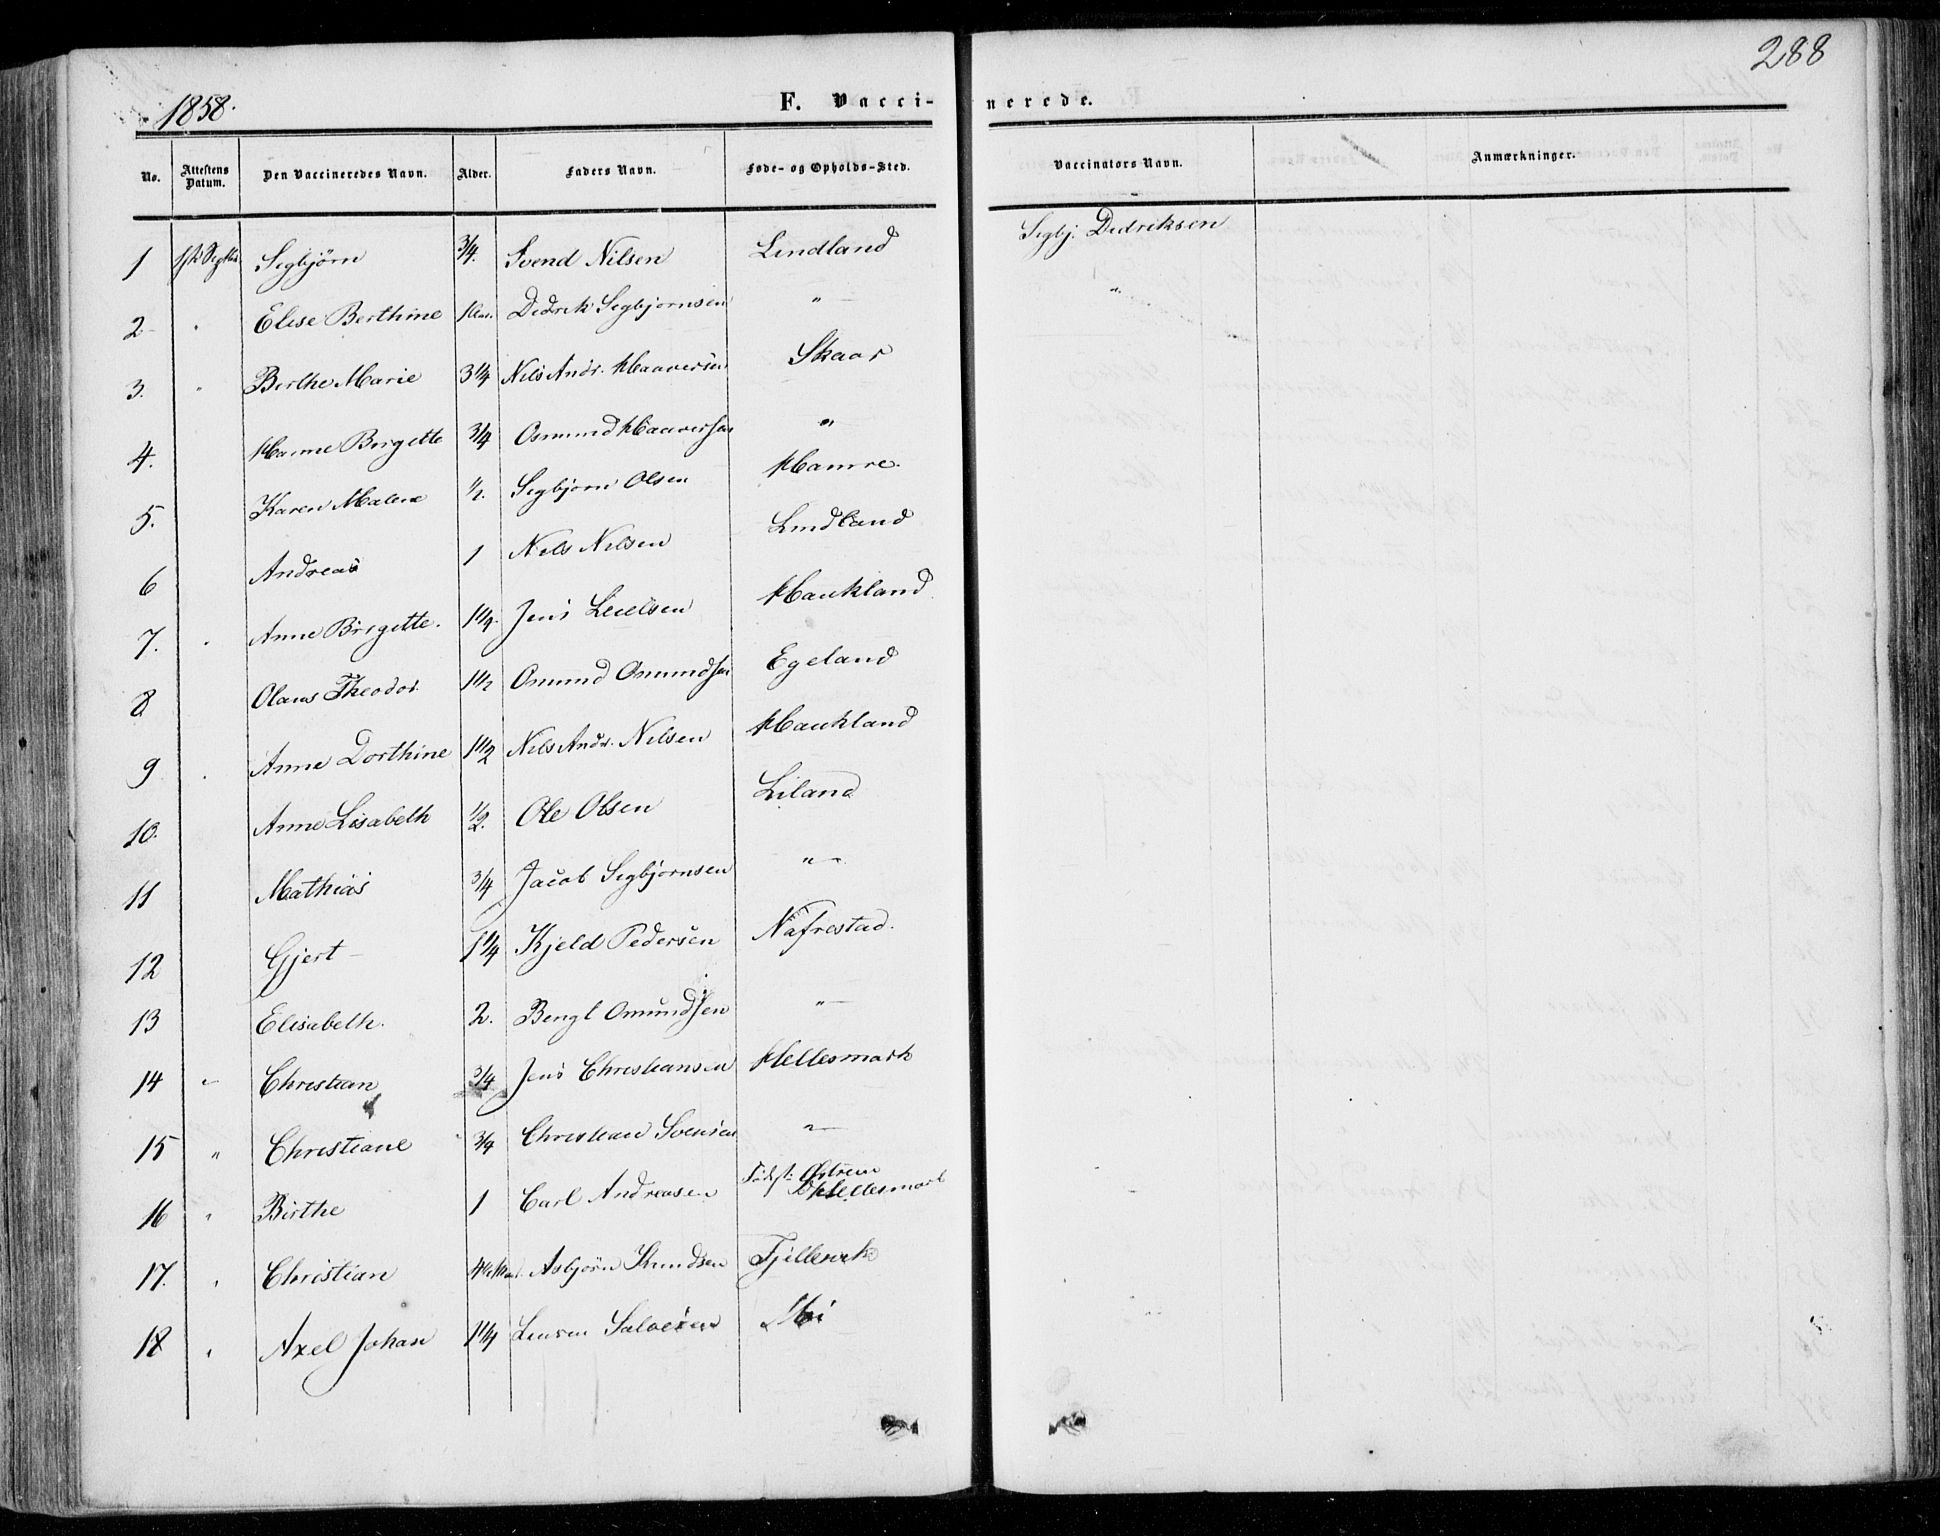 288
1858.
F. Vaccinerede.
No. Attestens Datum. Den Vaccineredes Navn. Alder. Faders Navn. Føde- og Opholds-Sted. Vaccinators Navn. Anmærkninger.
1 Segbjørn 3/4. Svend Nilsen Lindland Segbj. Dedriksen
2 " Elise Berthine Dedrik Segbjørnsen " "
3. " Berthe Marie 3 1/4 Nils Andr. Haaversen Skaar
4. Hanne Bergette 3/4 Osmund Haaversen "
5. Karen Malene 1/2. Segbjørn Olsen Hamre.
6 Andreas 1 Nels Nelsen Lindland
7. " Anne Birgette. 1 1/4. Jens Haukland
8 Olaus Theodor 1 1/2 Osmund Osmundsen Egeland
9 " Anne Dorthine 1 1/2 Nels Andr. Nelsen Haukland
10. Anne Lisabeth 1/2. Ole Olsen Liland
11 Mathias 3/4 Jacob Segbjørnsen "
12 Gjert 1 1/4 Kjeld Pedersen Nafrestad.
13 Elisabeth. 2. Bengt Omundsen "
14 " Christian 3/4 Jens Christiansen Hellesmark
15 " Christiane 3/4 Christian Svensen "
16 " Birthe 1 Carl Andreasen Fødest: Østrem
Hellesmark
17. " Christian Asbjørn Knudsen Fjellervik
18 " Axel Johan 1 1/4 Salvesen Moi